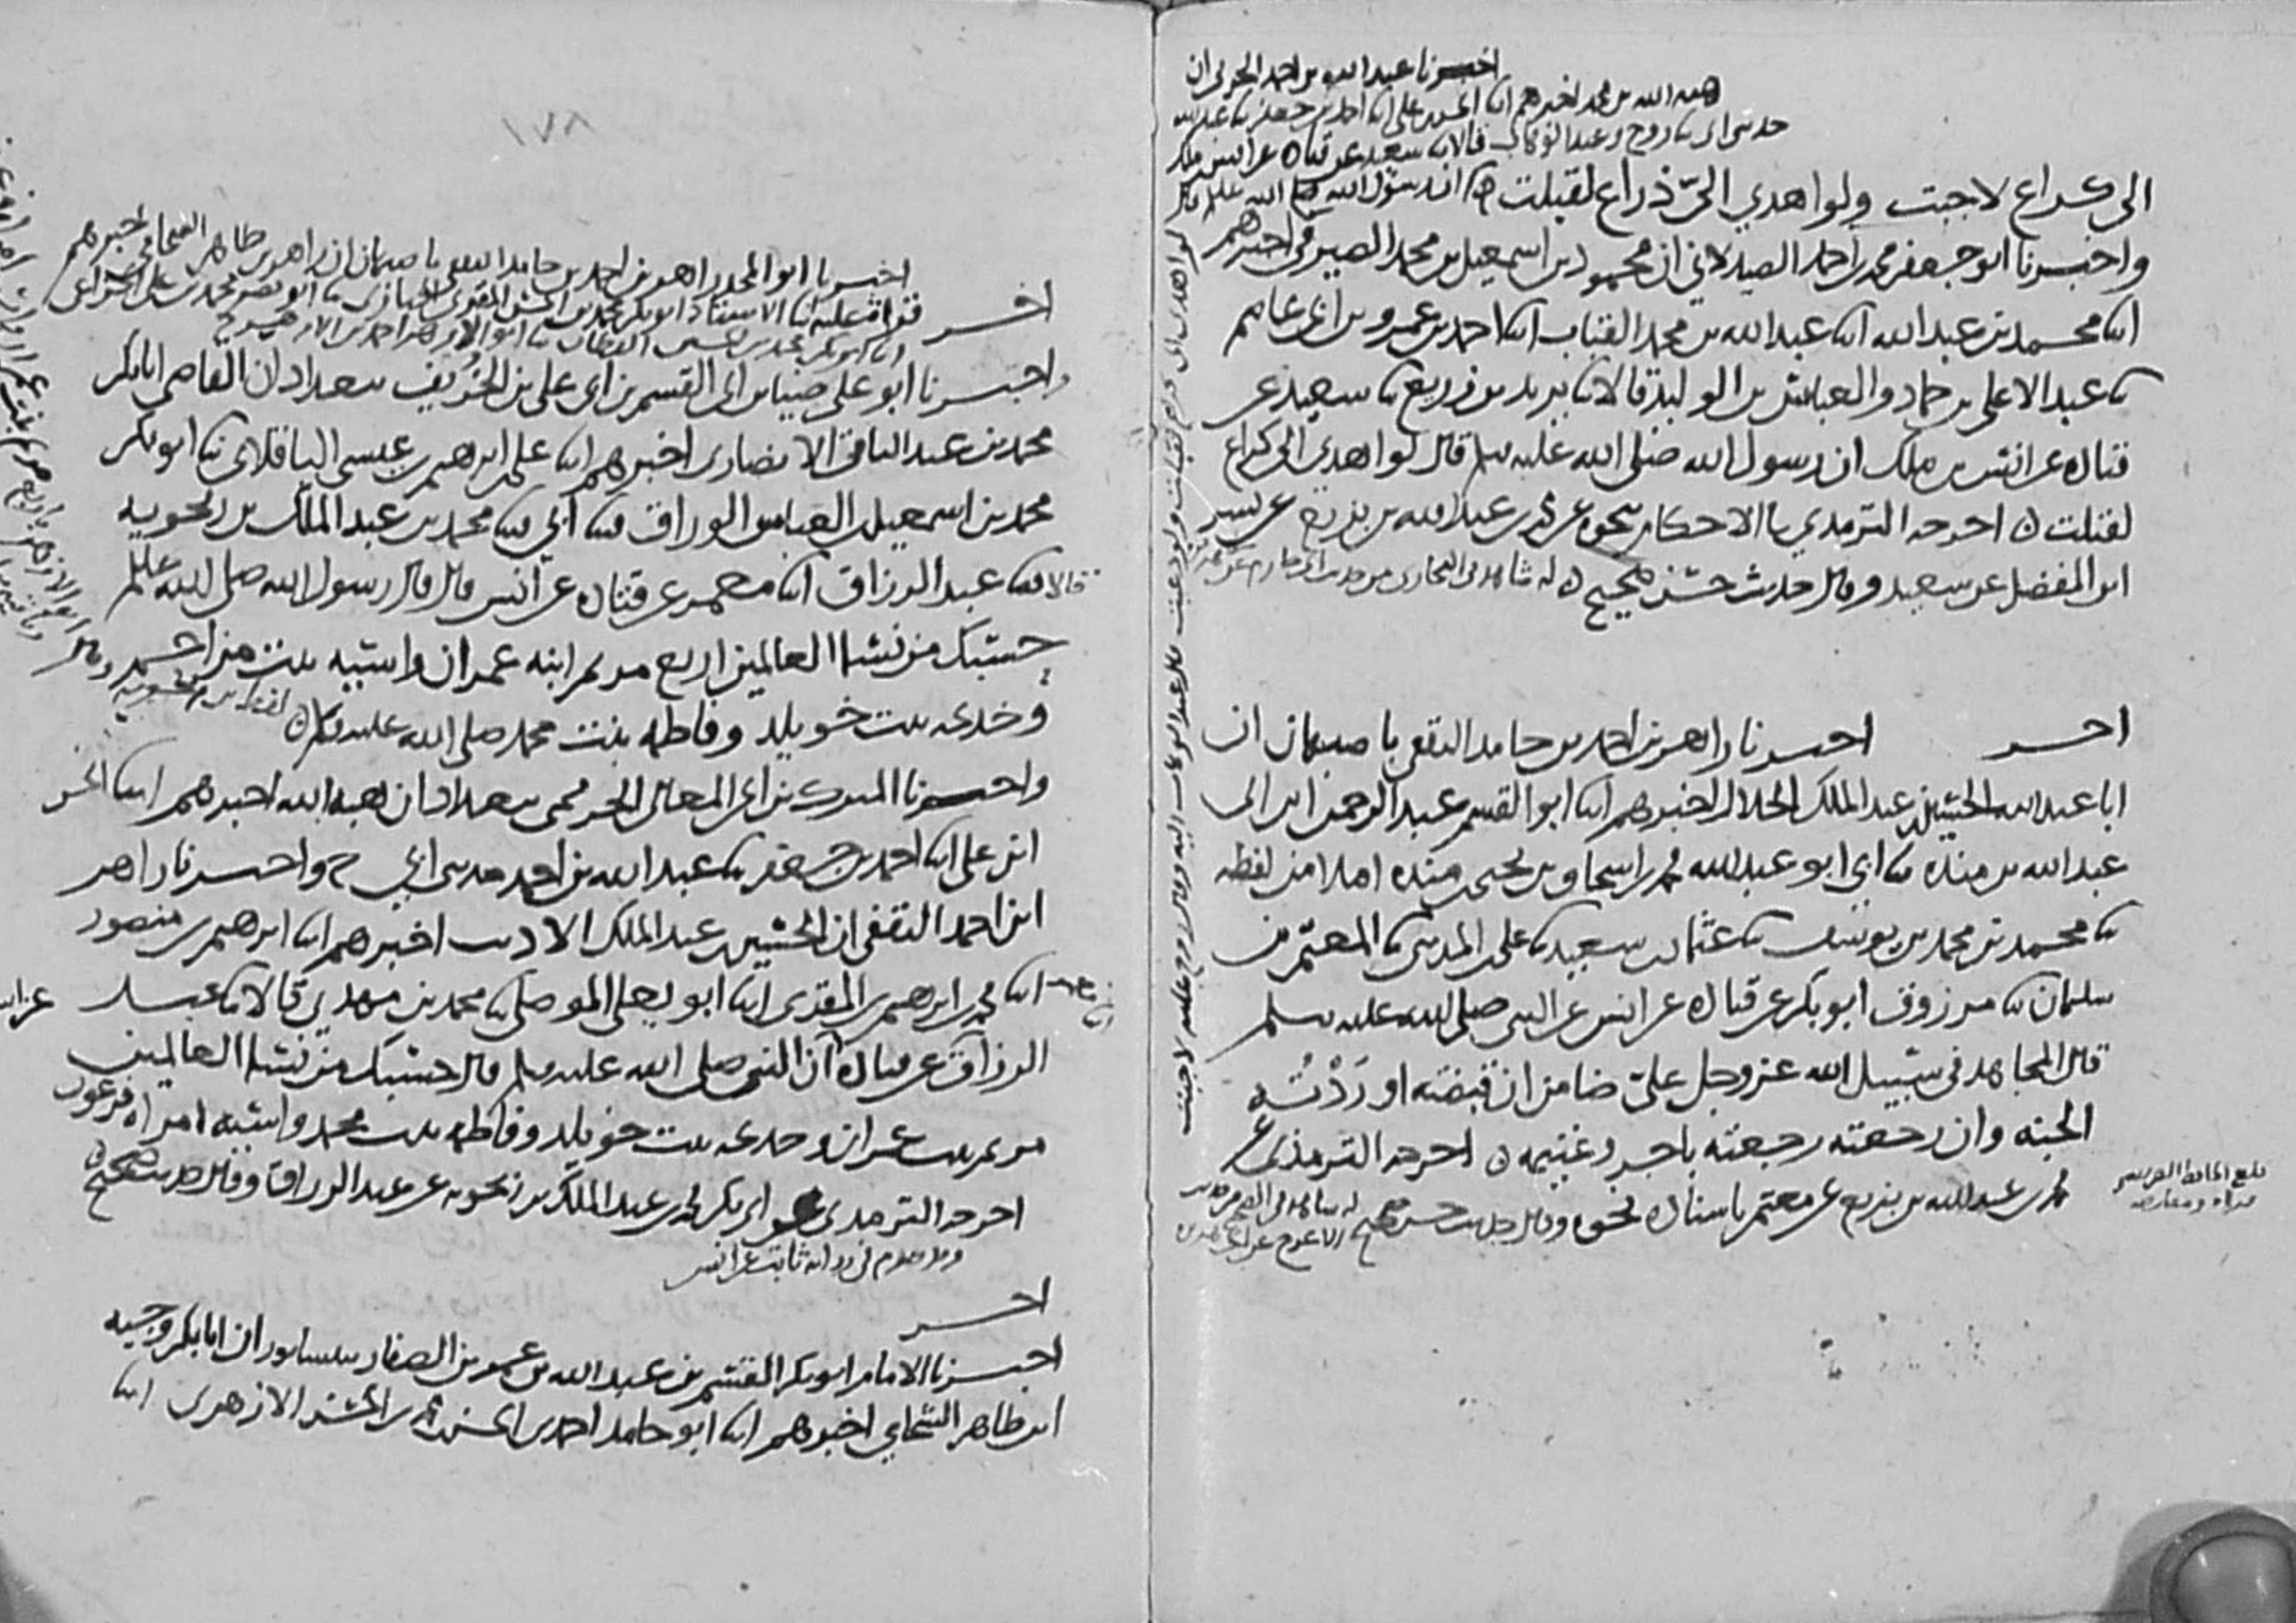 اخبرنا عبد الله بن احمد الحربي ان
هبه الله بن محمد اخبرهم ابنا الحسن بن علي ابنا احمد بن جعفر ثنا عبد الله
حدثني ابي ثنا روح وعبد الوهاب قالا ثنا سعيد عن قتاده عن انس بن ملك
ان رسول الله صلى الله عليه قال
لو اهدي الي
الى كراع لاجبت ولو اهدي اليّ ذراع لقبلت
واخبرنا ابو جعفر محمد بن احمد الصيدلاني ان محمود بن اسمعيل بن محمد الصيرفي اخبرهم
ابنا محمد بن عبد الله ابنا عبد الله بن محمد القباب ابنا احمد بن عمرو بن ابي عاصم
ثنا عبد الاعلى بن حماد والعباس بن الوليد قالا ثنا يزيد بن زريع ثنا سعيد عن
قتاده عن انس بن ملك ان رسول الله صلى الله عليه سلم قال لو اهدي الي كراع
لقبلت ه اخرجه الترمذي الاحكام بنحوه عن محمد بن عبد الله بن بزيع عن بشر
ابن المفضل عن سعيد وقال حديث حسن صحيح ه له شاهد في البخاري من حديث ابي حازم عن
اخر اخبرنا زاهر بن احمد بن حامد الثقفي باصبهان ان
ابا عبد الله الحسين بن عبد الملك الخلال اخبرهم ابنا ابو القسم عبد الرحمن ابن ابي
عبد الله بن منده ثنا ابي ابو عبد الله محمد بن اسحاق بن يحيى بن منده املا من لفظه
ثنا محمد بن محمد بن يوسف ثنا عثمان بن سعيد ثنا علي بن المديني ثنا المعتمر بن
سليمان ثنا مرزوق ابو بكر عن قتاده عن انس عن النبي صلى الله عليه سلم
قال المجاهد في سبيل الله عز وجل عليّ ضامن ان قبضته اورَدْتُه
الجنه وان رجعته رجعته باجر وغنيمه ه اخرجه الترمذي عن
محمد بن عبد الله بن بزيع عن معتمر باسناده نحوه وقال حديث حسن صحيح
اخبرنا ابو المجد زاهر بن احمد بن حامد الثقفي باصبهان ان زاهر بن طاهر الشحامي اخبرهم
اخر قراة عليه ابنا الاستاذ ابو بكر محمد بن الحسن المقرئ
ابنا ابو بكر محمد بن الحسين القطان ثنا ابو الازهر احمد بن الازهر ح
واخبرنا ابو علي ضياء بن ابي القسم بن ابي علي بن الخُرَيف ببغداد ان القاضي ابا بكر
محمد بن عبد الباقي الانصاري اخبرهم ابنا علي بن ابرهيم بن عيسى الباقلاني ثنا ابو بكر
محمد بن اسمعيل بن العباس الوراق ثنا ابي ثنا محمد بن عبد الملك بن زنجويه
قالا ثنا عبد الرزاق ابنا معمر عن قتاده عن انس قال قال رسول الله صلى الله عليه سلم
حسبك من نسا العالمين اربع مريم ابنه عمران واسيه بنت مزاحم
وخديجه بنت خويلد وفاطمه بنت محمد صلى الله عليه وسلم ه لفظ ابن زنجويه
واخبرنا المبرك بن ابي المعالي الحريمي ببغداد ان هبه الله اخبرهم ابنا الحسن
ابن علي ابنا احمد بن جعفر ثنا عبد الله بن احمد حدثني ابي ح واخبرنا زاهر
ابن احمد الثقفي ان الحسين بن عبد الملك الاديب اخبرهم ابنا ابرهيم بن منصور
ابنا محمد بن ابرهيم بن المقرئ ابنا ابو يعلى الموصلي ثنا محمد بن مهدي قالا ثنا عبد
الرزاق عن قتاده ان النبي صلى الله عليه سلم قال حسبك من نسا العالمين
مريم بنت عمران وخديجه بنت خويلد وفاطمه بنت محمد واسيه امراه فرعون
اخرجه الترمذي عن ابي بكر محمد بن عبد الملك بن زنجويه عن عبد الرزاق وقال حديث صحيح ه
وقد تقدم في روايه ثابت عن انس
اخر
اخبرنا الامام ابو بكر القسم بن عبد الله بن عمر بن الصفار بنيسابور ان ابا بكر وجيه
ابن طاهر الشحامي اخبرهم ابنا ابو حامد احمد بن الحسن بن محمد بن الحسن الازهري ابنا